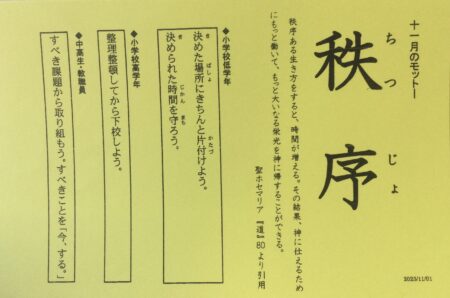 十一月のモットー
秩序
ちつじょ
秩序ある生き方をすると、時間が増える。その結果、神に仕えるため
にもっと働いて、もっと大いなる栄光を神に帰することができる。
聖ホセマリア『道』80より引用
◆小学校低学年
決めた場所にきちんと片付けよう。
き ばしょ かたづ
決められた時間を守ろう。
き じかん まも
◆小学校高学年
整理整頓してから下校しよう。
◆中高生・教職員
すべき課題から取り組もう。すべきことを「今、する。」
2023/11/01